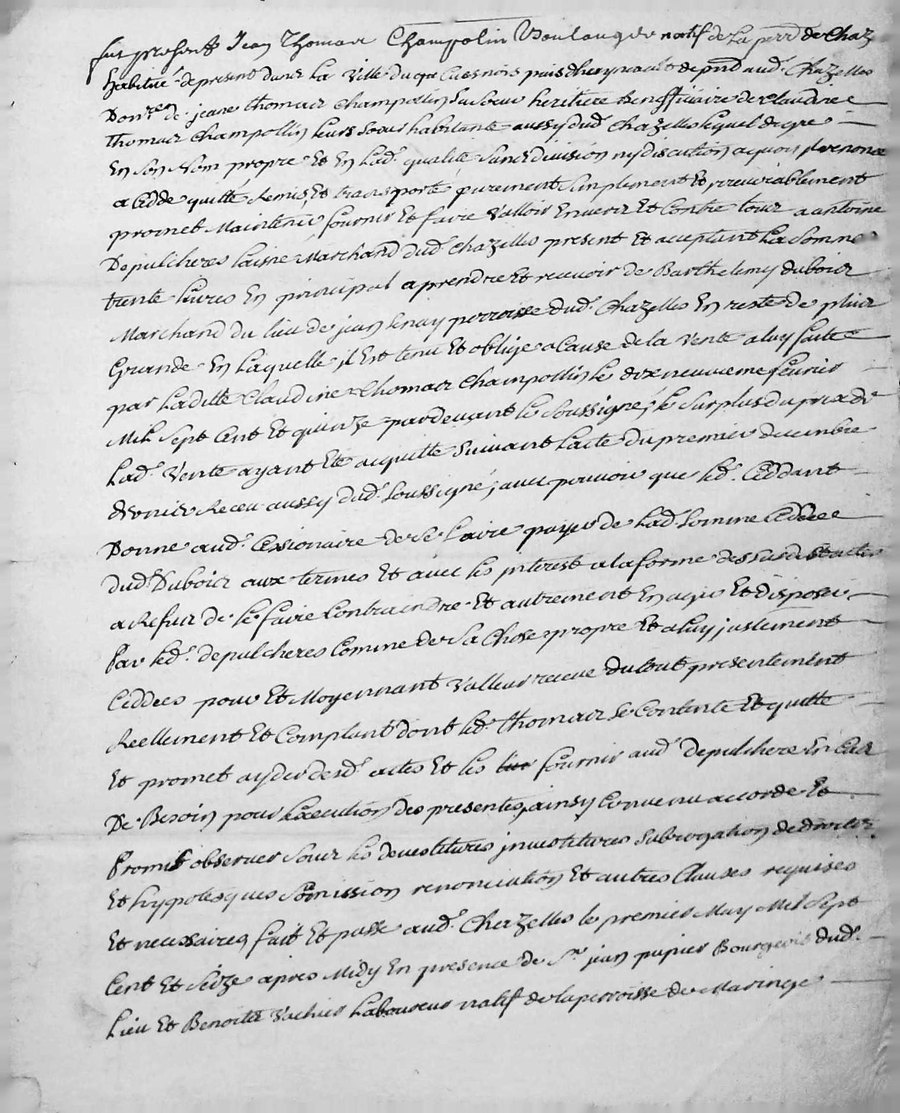 fut present Jean Thomas Champolin Boulanger natif de la parr. de Chaz.
habitué de present dans la Ville du depnt aud. Chazelles
Donre. de jeane thomas Champollin sa soeur heritiere Benefficiaire de claudine
thomas Champollin leurs soeur habitante aussy dud. Chazelles lequel de gre
En son Nom propre Et En lad. qualité sans division ny discution a quoy il renonce
a Cedde quitte Remis Et transporté purement simplement Et irrevocablement
promet Maintenir fournir Et faire Valloir Envers Et Contre tous a antoine
Depulcheres laisne Marchand dud. Chazelles present Et aceptant La somme
trente livres En principal a prendre Et recevoir de Barthelemy duboir
Marchand du lieu de jean perroisse dud. Chazelles En reste de plus
Grande En Laquelle il Est tenu Et oblige a Cause de la Vente a luy faitte
par Laditte Claudine Thomas Champollin le dix neuvieme fevrier
Mil Sept Cent Et quinze pardevant le soussigné, le surplus du prix de
Lad. Vente ayant Eté acquitté suivant L'acte du premier decembre
dernier Receu aussy dud. soussigné, avec pouvoir que led. Ceddant
Donne aud. Cessionaire de se faire payer de Lad. somme Ceddee
dud. Duboir aux termes Et avec les interest a la forme desdactes
a Refus de le faire Contraindre Et autrement En agir Et disposer
Par led. depulcheres Comme de sa Chose propre Et a Luy justement
Ceddees pour Et Moyennant Valleur receue du tout presentement
Reellement Et Comptant dont led. thomas se Contente Et quitte
Et promet ayder desd. actes Et les fournir aud. Depulchere En Cas
De Besoin pour L'execution des presentes, ainsy Convenu accorde Et
Promis observer sous les devestitures investitures subrogation de droits
Et hypoteques sômission renonciation Et autres Clauses requises
Et necessaires, fait Et passé aud. Chazelles le premier May Mil Sept
Cent Et seize apres Midy En presence de Sr. jean papier Bourgeois dud.
Lieu Et Benoitt Vachier Laboureur natif de la perroisse de Maringe